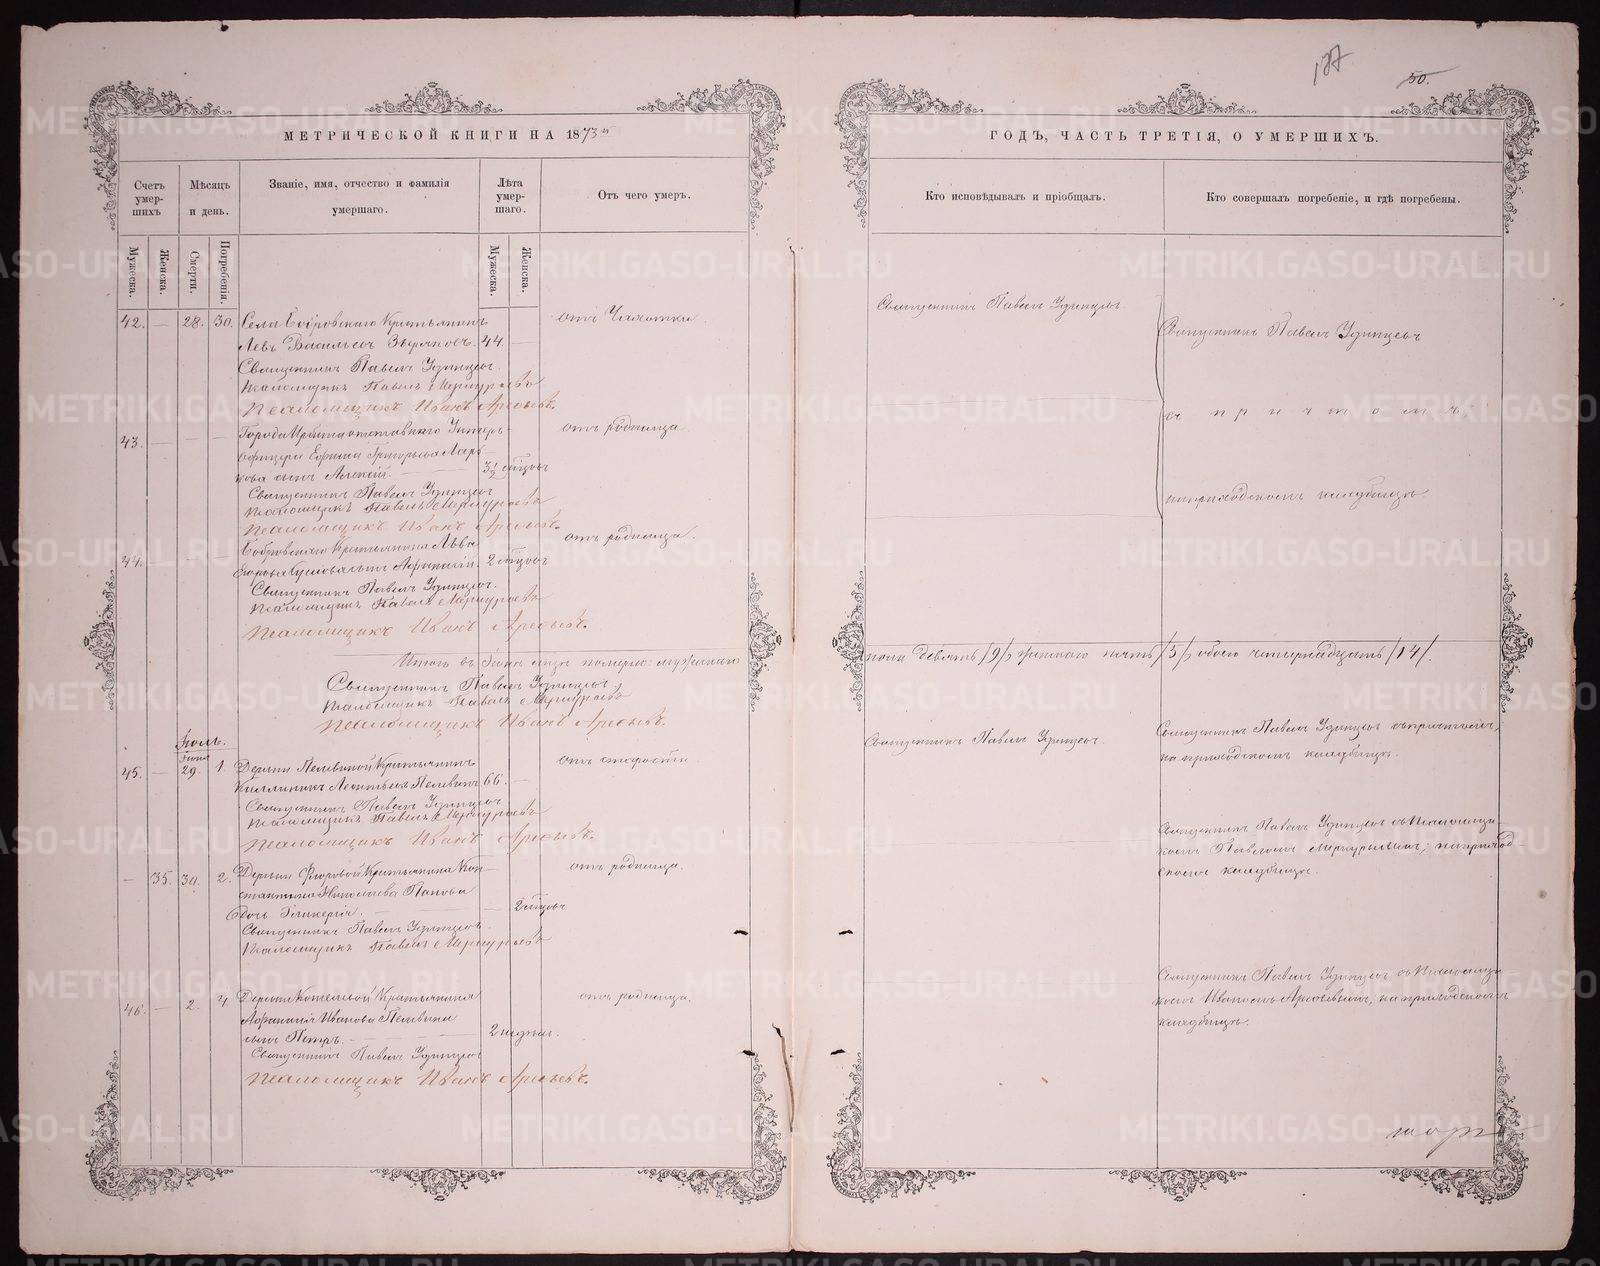 187
50.
МЕТРИЧЕСКОЙ КНИГИ НА 1873й
ГОДЪ, ЧАСТЬ ТРЕТІЯ, О УМЕРШИХЪ.
Счетъ умер-шихъ
Мѣсяцъ и день.
Званіе, имя, отчество и фамилія умершаго.
Лѣта умер-шаго.
Отъ чего умеръ.
Кто исповѣдывалъ и пріобщалъ.
Кто совершалъ погребеніе, и гдѣ погребены.
Мужеска.
Женска.
Смерти.
Погребенія.
Мужеска.
Женска.
42. — 28. 30. Села Бобровскаго Крестьянинъ
Левъ Васильевъ 44. —
отъ Чахотки
Священникъ Павелъ Удинцевъ
Псаломщикъ Павелъ Меркурьевъ
Псаломщикъ Иванъ Арефьевъ.
Священникъ Павелъ Удинцевъ
Священникъ Павелъ Удинцевъ
съ причтомъ,
на приходскомъ кладбищѣ
43. — — — Города Ирбита отставнаго Унтеръ-
офицера Ефима Григорьева
сынъ Алексій. 3½ мѣсяцъ
отъ родимца
Священникъ Павелъ Удинцевъ
Псаломщикъ Павелъ Меркурьевъ
Псаломщикъ Иванъ Арефьевъ.
44. — — — Бобровскаго Крестьянина Льва
сынъ Афанасій. 2 мѣсяцъ
отъ родимца.
Священникъ Павелъ Удинцевъ.
Псаломщикъ Павелъ Меркурьевъ
Псаломщикъ Иванъ Арефьевъ.
Итого въ Іюнѣ мцѣ померло: мужескаго
пола девять /9/, женскаго пять /5/, обоего четырнадцать /14/.
Священникъ Павелъ Удинцевъ
Псаломщикъ Павелъ Меркурьевъ
Псаломщикъ Иванъ Арефьевъ.
Іюль.
Іюня
45. — 29. 1. Деревни Пелевиной Крестьянинъ
Каллиникъ Леонтьевъ Пелевинъ 66. —
отъ старости
Священникъ Павелъ Удинцевъ
Псаломщикъ Павелъ Меркурьевъ
Псаломщикъ Иванъ Арефьевъ.
Священникъ Павелъ Удинцевъ.
Священникъ Павелъ Удинцевъ съ причтомъ,
на приходскомъ кладбищѣ.
— 35. 30. 2. Деревни Крестьянина Кон-
стантина Николаева Панова
дочь Гликерія. — 2 мѣсяцъ
отъ родимца.
Священникъ Павелъ Удинцевъ.
Псаломщикъ Павелъ Меркурьевъ
Священникъ Павелъ Удинцевъ съ Псаломщи-
комъ Павломъ Меркурьевымъ, на приход-
скомъ кладбищѣ.
46. — 2. 4. Деревни Крестьянина
Афанасія Иванова Пелевина
сынъ Петръ. 2 недѣли.
отъ родимца.
Священникъ Павелъ Удинцевъ
Псаломщикъ Иванъ Арефьевъ.
Священникъ Павелъ Удинцевъ съ Псаломщи-
комъ Иваномъ Арефьевымъ, на приходскомъ
кладбищѣ.
METRIKI.GASO-URAL.RU